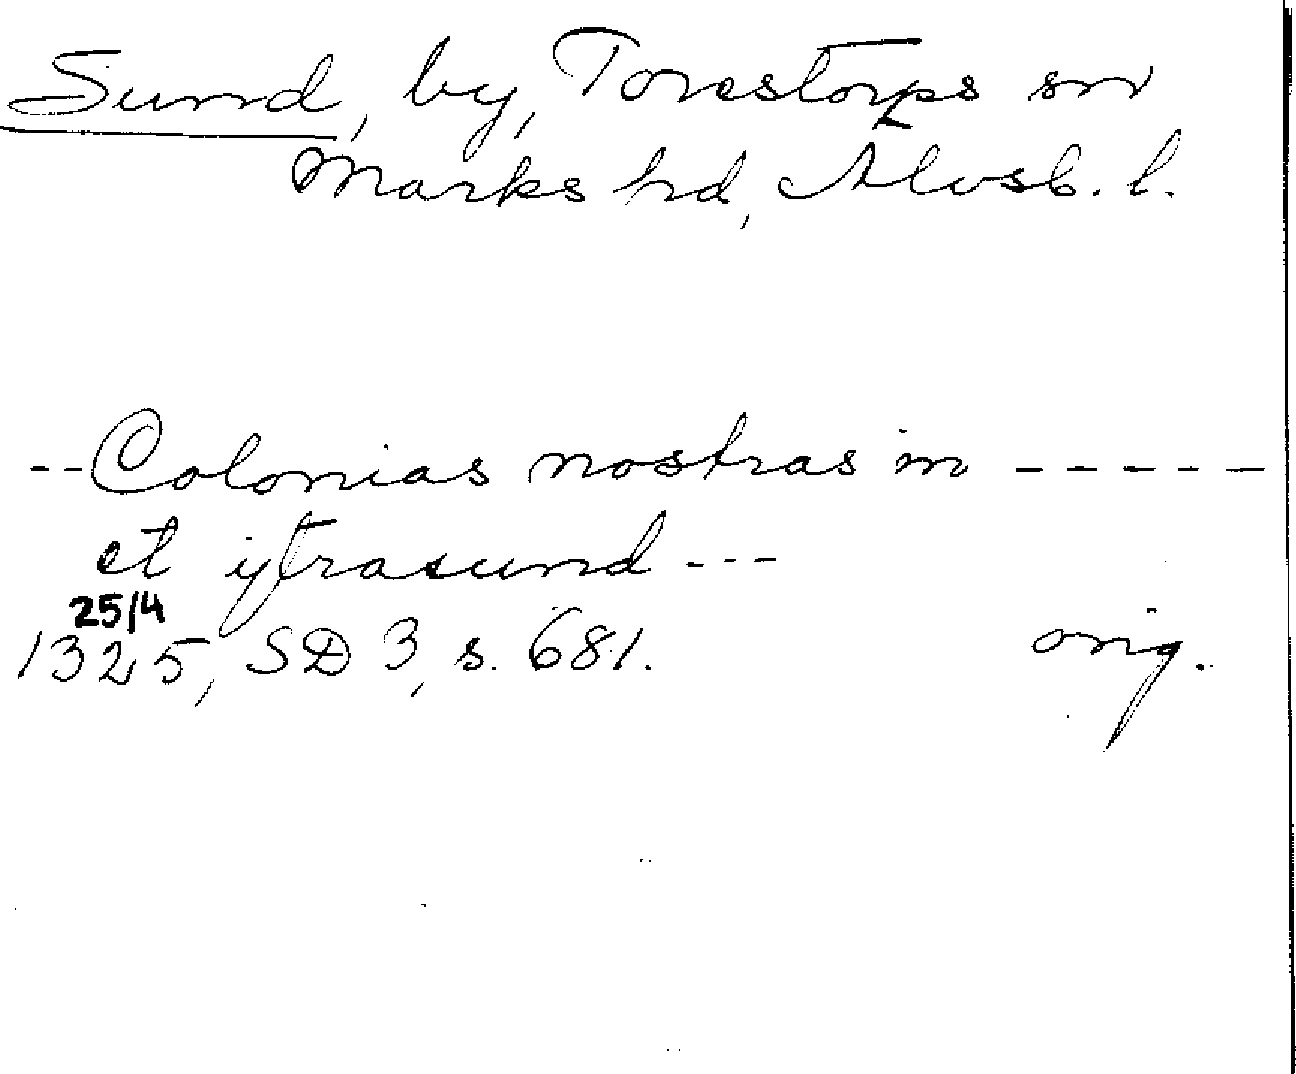 Sund, by, Torestorps sn
Marks hd, Älvsb. l.
--Colonias nostras in -----
et ytrasund ---
25/4
1325, SD 3, s. 681. orig.